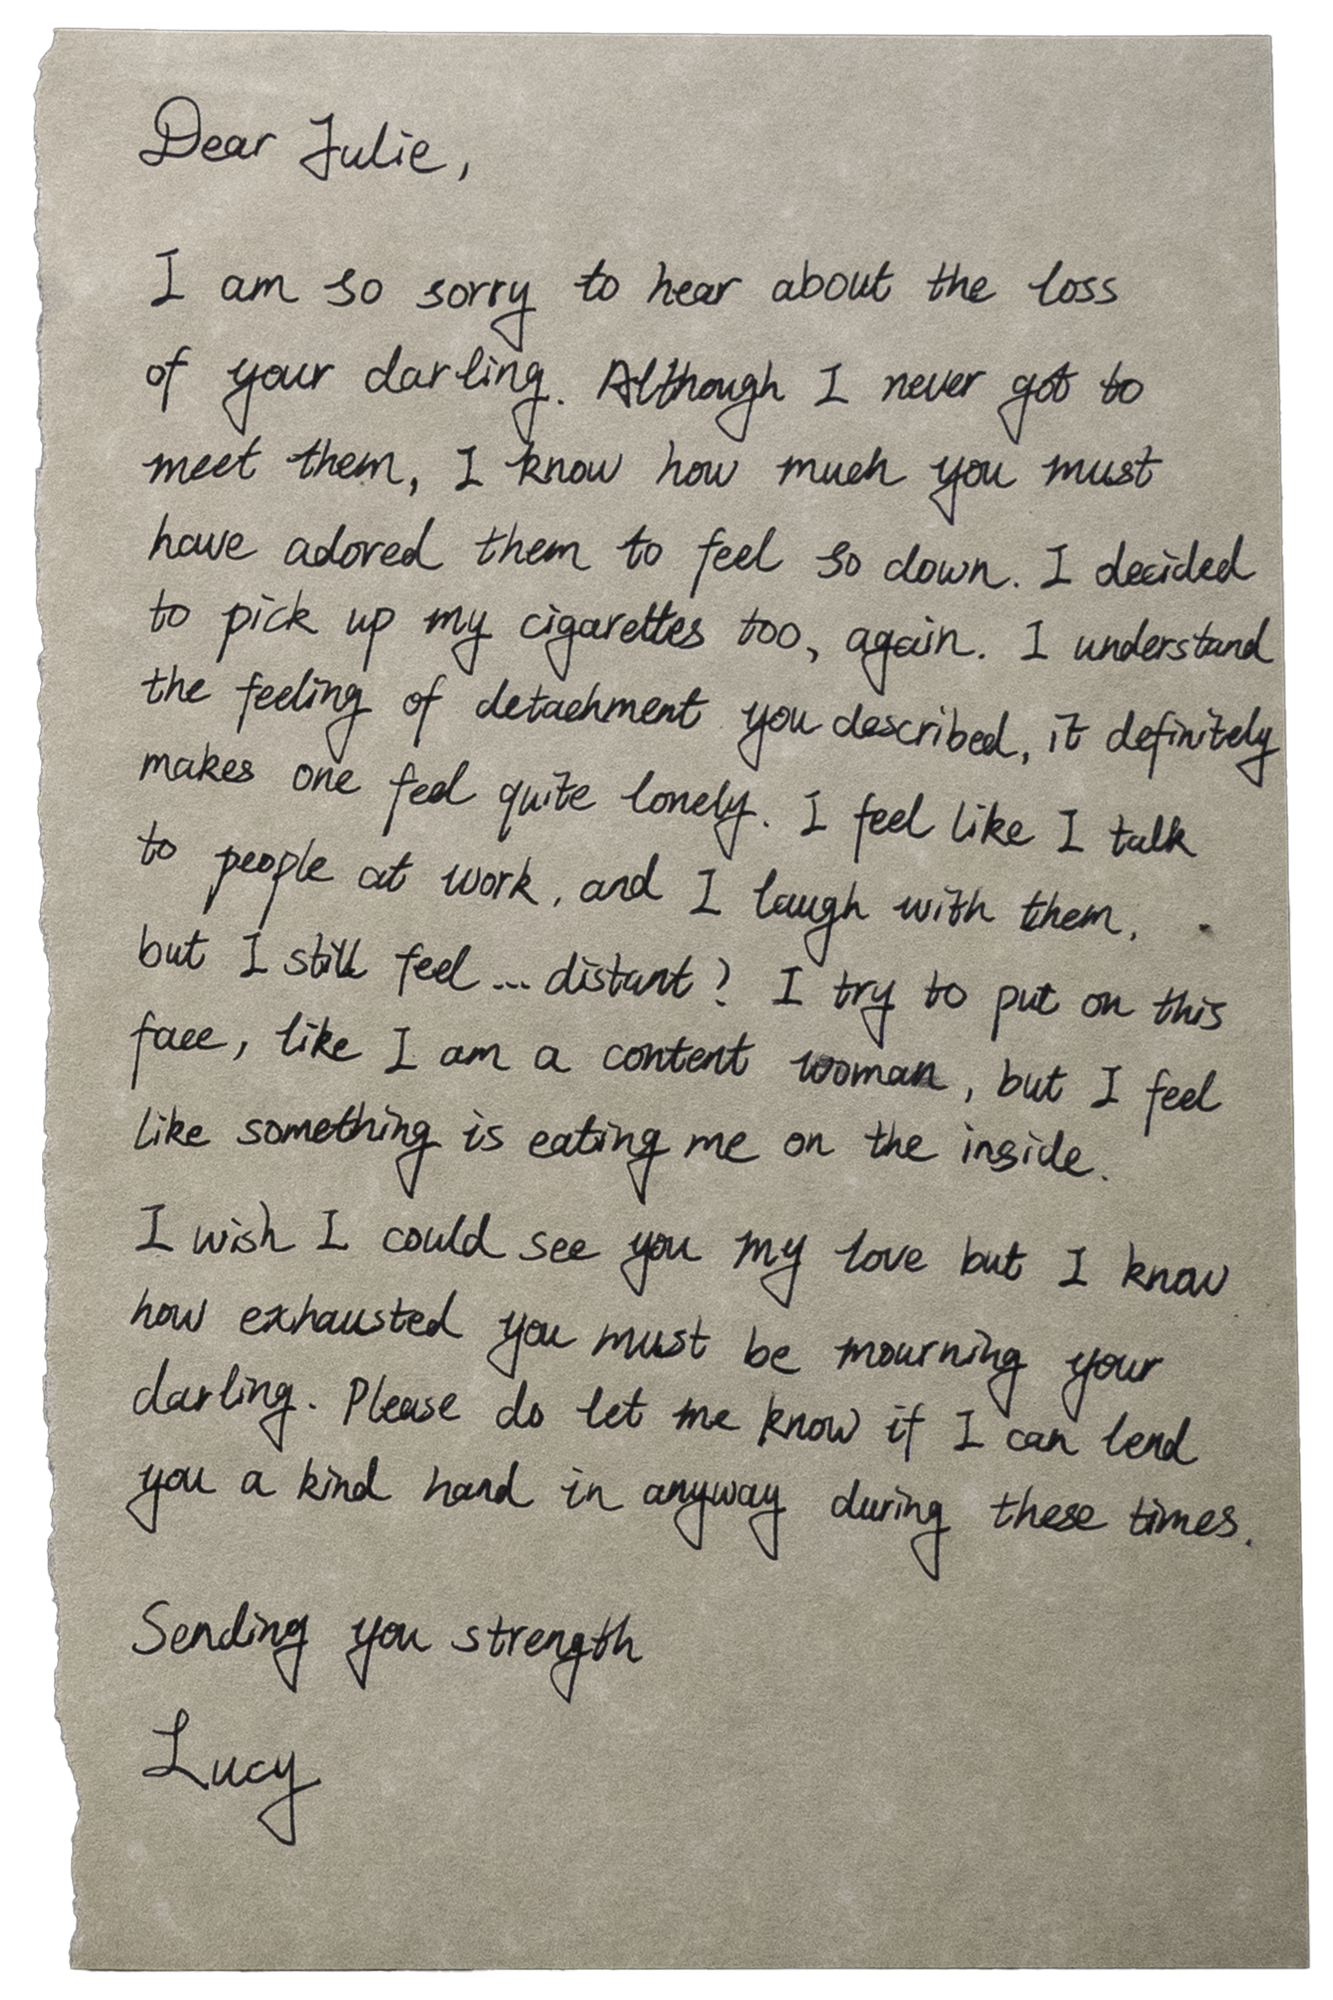 Dear Julie,
I am so sorry to hear about the loss
of your darling. Although I never got to
meet them, I know how much you must
have adored them to feel so down. I decided
to pick up my cigarettes too, again. I understand
the feeling of detachment you described, it definitely
makes one feel quite lonely. I feel like I talk
to people at work, and I laugh with them,
but I still feel... distant? I try to put on this
face, like I am a content woman, but I feel
like something is eating me on the inside.
I wish I could see you my love but I know
how exhausted you must be mourning your
darling. Please do let me know if I can lend
you a kind hand in anyway during these times.
Sending you strength
Lucy